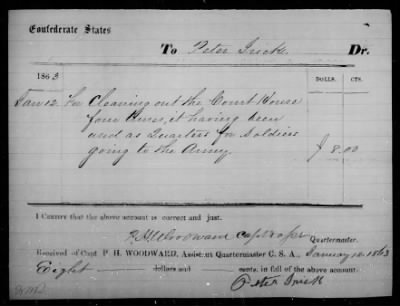 Confederate States
To Peter Frick Dr.
1863 DOLLS. CTS.
Jan 12. For Cleaning out the Court House
four times, it having been
used as Quarters for Soldiers
going to the Army $ 8.00
I CERTIFY that the above account is correct and just.
P.H. Woodward Capt
Quartermaster.
Received of Capt P. H. WOODWARD, Assistant Quartermaster C. S. A., January 12 1863
Eight dollars and cents, in full of the above account.
Peter Frick